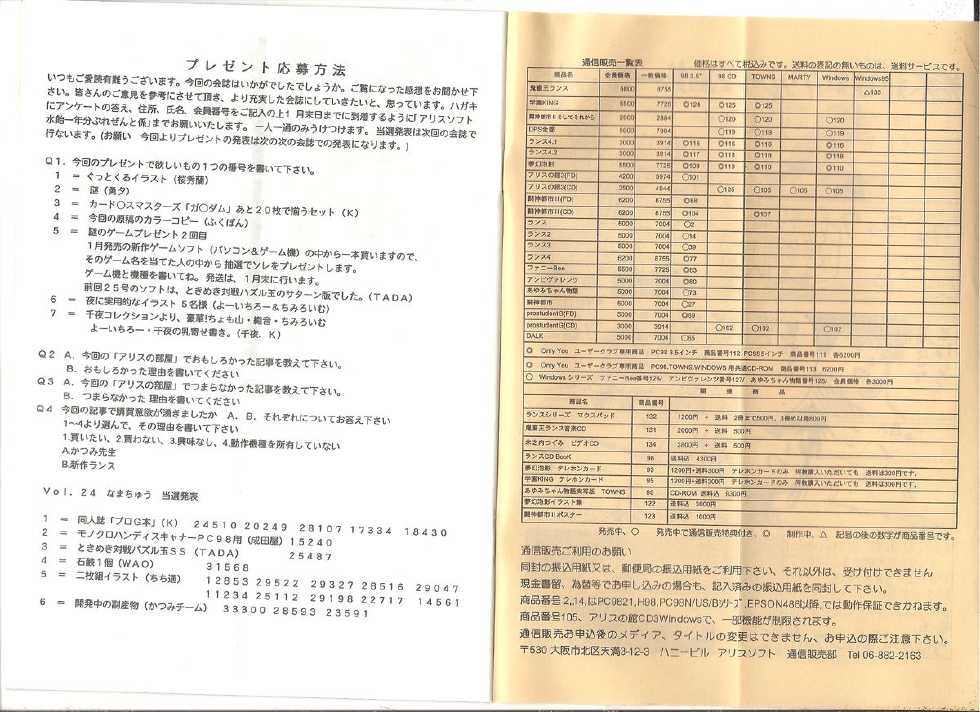 プレゼント応募方法
いつもご愛読有難うございます。今回の会誌はいかがでしたでしょうか。ご覧になった感想をお聞かせ下
さい。皆さんのご意見を参考にさせて頂き、より充実した会誌にしていきたいと、思っています。ハガキ
にアンケートの答え、住所、氏名、会員番号をご記入の上1月末日までに到着するように「アリスソフト
水飴一年分ぷれぜんと係」までお願いいたします。 一人一通のみうけつけます。当選発表は次回の会誌で
行ないます。(お願い 今回よりプレゼントの発表は次の次の会誌での発表になります。)
Q1. 今回のプレゼントで欲しいもの1つの番号を書いて下さい。
1 = ぐっとくるイラスト (桜秀蘭)
2 = 謎 (勇夕)
3 = カード○スマスターズ「ガ○ダム」あと20枚で揃うセット (K)
4 = 今回の原稿のカラーコピー (ふくぽん)
5 = 謎のゲームプレゼント2回目
1月発売の新作ゲームソフト (パソコン&ゲーム機) の中から一本買いますので、
そのゲーム名を当てた人の中から 抽選でソレをプレゼントします。
ゲーム機と機種を書いてね。発送は、1月末に行います。
前回25号のソフトは、ときめき対戦パズル玉のサターン版でした。(TADA)
6 = 夜に実用的なイラスト 5名様 (よーいちろー&ちみろいむ)
7 = 千夜コレクションより、豪華!ちょも山・織音・ちみろいむ
よーいちろー・千夜の乳寄せ書き。(千夜. K)
Q2 A. 今回の「アリスの部屋」でおもしろかった記事を教えて下さい。
B. おもしろかった理由を書いてください
Q3 A. 今回の「アリスの部屋」でつまらなかった記事を教えて下さい。
B. つまらなかった 理由を書いてください
Q4 今回の記事で購買意欲が湧きましたか A、B、それぞれについてお答え下さい
1~4より選んで、その理由を書いて下さい
1.買いたい、2.買わない、3.興味なし、4.動作機種を所有していない
A.かつみ先生
B.新作ランス
Vol. 24 なまちゅう 当選発表
1 = 同人誌「プロG本」(K) 24510 20249 28107 17334 18430
2 = モノクロハンディスキャナーPC98用 (成田屋) 15240
3 = ときめき対戦パズル玉SS (TADA) 25487
4 = 石鹸1個 (WAO) 31568
5 = 二枚組イラスト (ちち通) 12853 29522 29327 28516 29047
11234 25112 29198 22717 14561
6 = 開発中の副産物 (かつみチーム) 33300 28593 23591
通信販売一覧表 価格はすべて税込みです。送料の表記の無いものは、送料サービスです。
商品名 会員価格 一般価格 98 3.5" 98 CD TOWNS MARTY Windows Windows95
鬼畜王ランス 6800 8755 △130
学園KING 6500 7725 ◎124 ◎125 ◎125
闘神都市Ⅱそしてそれから ○120 ○120 ○120
DPS全部 ○119 ○119 ○119
ランス4.1 3000 3914 ◎116 ◎116 ◎116 ◎116
ランス4.2 3000 3914
夢幻泡影 ◎110
アリスの館3(FD) 4200 ○101
アリスの館3(CD) 3500 ○105 ○105 ○105 ○105
闘神都市Ⅱ(FD) 6200 8755
闘神都市Ⅱ(CD) 6200 8755 ◎104 ◎107
ランス 5000 7004 ○2
ランス2 5000 7004 ○14
ランス3 5000 7004 ○39
ランス4 6200 8755 ○77
ファニーBee 5500 7725
アンビヴァレンツ 5000 7004
あゆみちゃん物語 5000 7004 ○73
闘神都市 5000 7004
prostudentG(FD) 5000 7004
prostudentG(CD) 3000 3914 ○102 ○102 ○102
DALK 5000 7004
◎ Only You ユーザークラブ専用商品 PC98 3.5インチ 商品番号112 PC98 5インチ 商品番号111 各5200円
◎ Only You ユーザークラブ専用商品 PC98,TOWNS,WINDOWS 用共通CD-ROM 商品番号113 5200円
○ Windowsシリーズ ファニーBee番号126/ アンビヴァレンツ番号127/ あゆみちゃん物語番号128/ 会員価格 各3000円
関連商品
商品名 商品番号
ランスシリーズ マウスパッド 132 1200円 + 送料 2冊まで500円、3冊め以降800円
鬼畜王ランス音楽CD 131 2000円 + 送料 500円
未之内つぐみ ビデオCD 134 3800円 + 送料 500円
ランスCD Book 96 送料込 4300円
夢幻泡影 テレホンカード 93 1200円+送料300円 テレホンカードのみ 何枚購入いただいても 送料は300円です。
学園KING テレホンカード 95 1200円+送料300円 テレホンカードのみ 何枚購入いただいても 送料は300円です。
あゆみちゃん物語実写版 TOWNS 90 CD-ROM 送料込 9300円
夢幻泡影イラスト集 122 送料込 3600円
闘神都市Ⅱポスター 123 送料込 1600円
発売中、○ 発売中で通信販売特典付き、◎ 制作中、△ 記号の後の数字が商品番号です。
通信販売ご利用のお願い
同封の振込用紙又は、郵便局の振込用紙をご利用下さい、それ以外は、受け付けできません
現金書留、為替等でお申し込みの場合も、記入済みの振込用紙を同封して下さい。
商品番号2,,14,はPC9821,H98,PC98N/US/Bｼﾘｰｽﾞ,EPSON486以降,では動作保証できかねます。
商品番号105、アリスの館CD3Windowsで、一部機能が制限されます。
通信販売お申込後のメディア、タイトルの変更はできません、お申込の際ご注意下さい。
〒530 大阪市北区天満3-12-3 ハニービル アリスソフト 通信販売部 Tel 06-882-2163